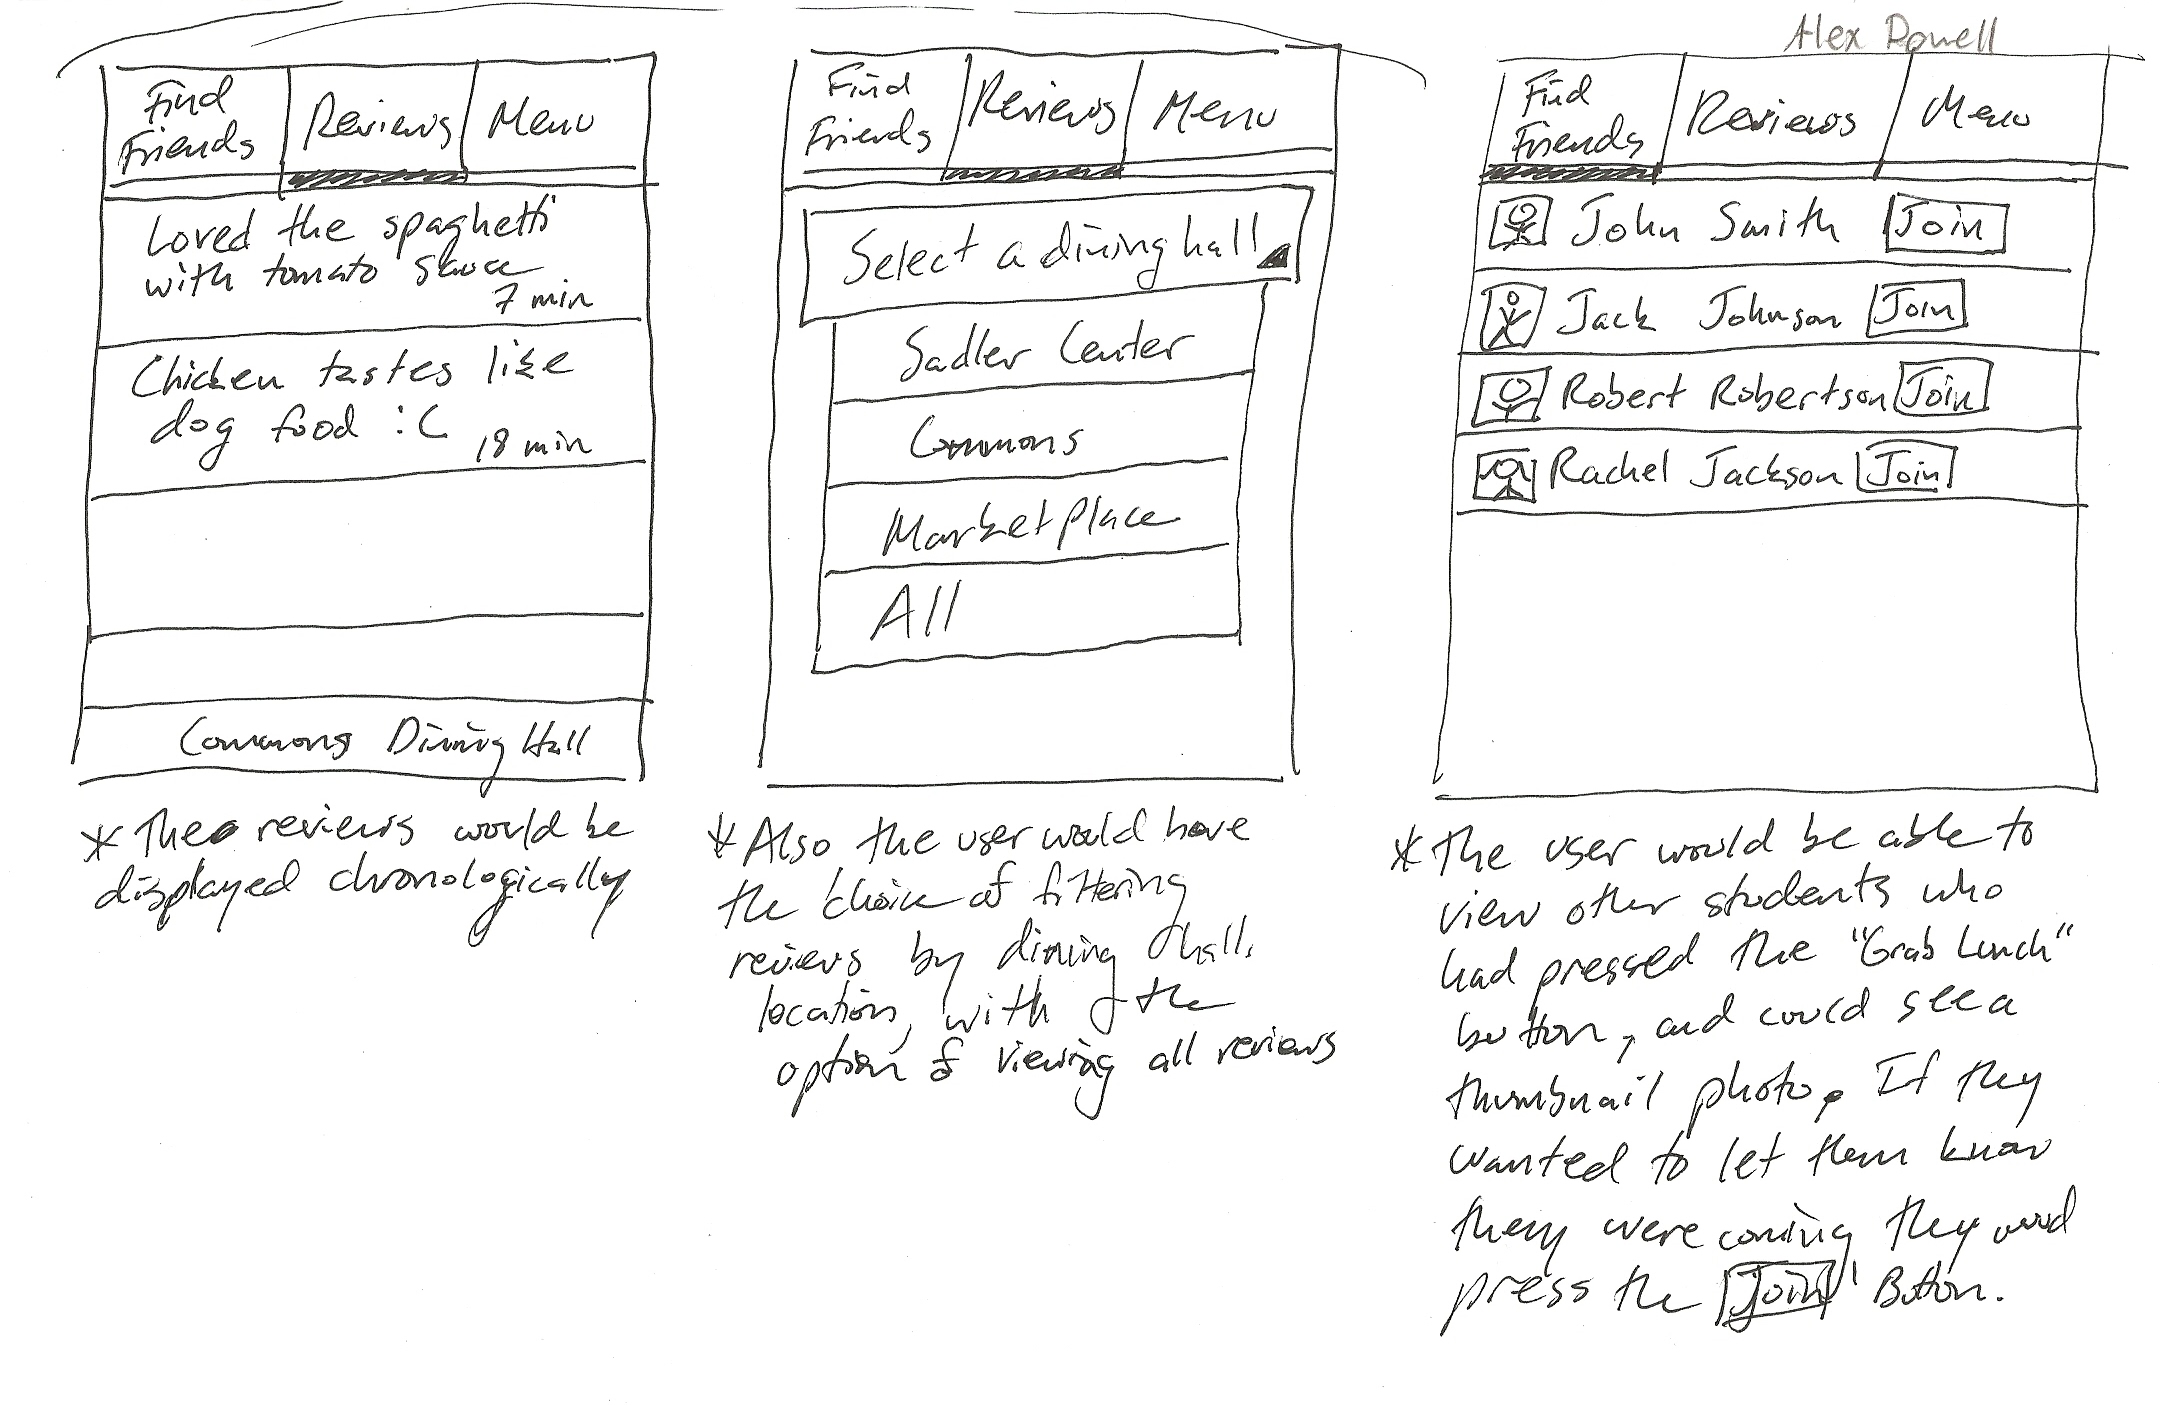 Alex Powell
Find
Friends
Reviews
Menu
Loved the spaghetti
with tomato sauce
7 min
Chicken tastes like
dog food :(
18 min
Commons Dining Hall
* The reviews would be
displayed chronologically
Find
Friends
Reviews
Menu
Select a dining hall
Sadler Center
Commons
Marketplace
All
* Also the user would have
the choice of filtering
reviews by dining hall
location, with the
option of viewing all reviews
Find
Friends
Reviews
Menu
John Smith Join
Jack Johnson Join
Robert Robertson Join
Rachel Jackson Join
* The user would be able to
view other students who
had pressed the "Grab Lunch"
button, and could see a
thumbnail photo. If they
wanted to let them know
they were coming they would
press the Join Button.